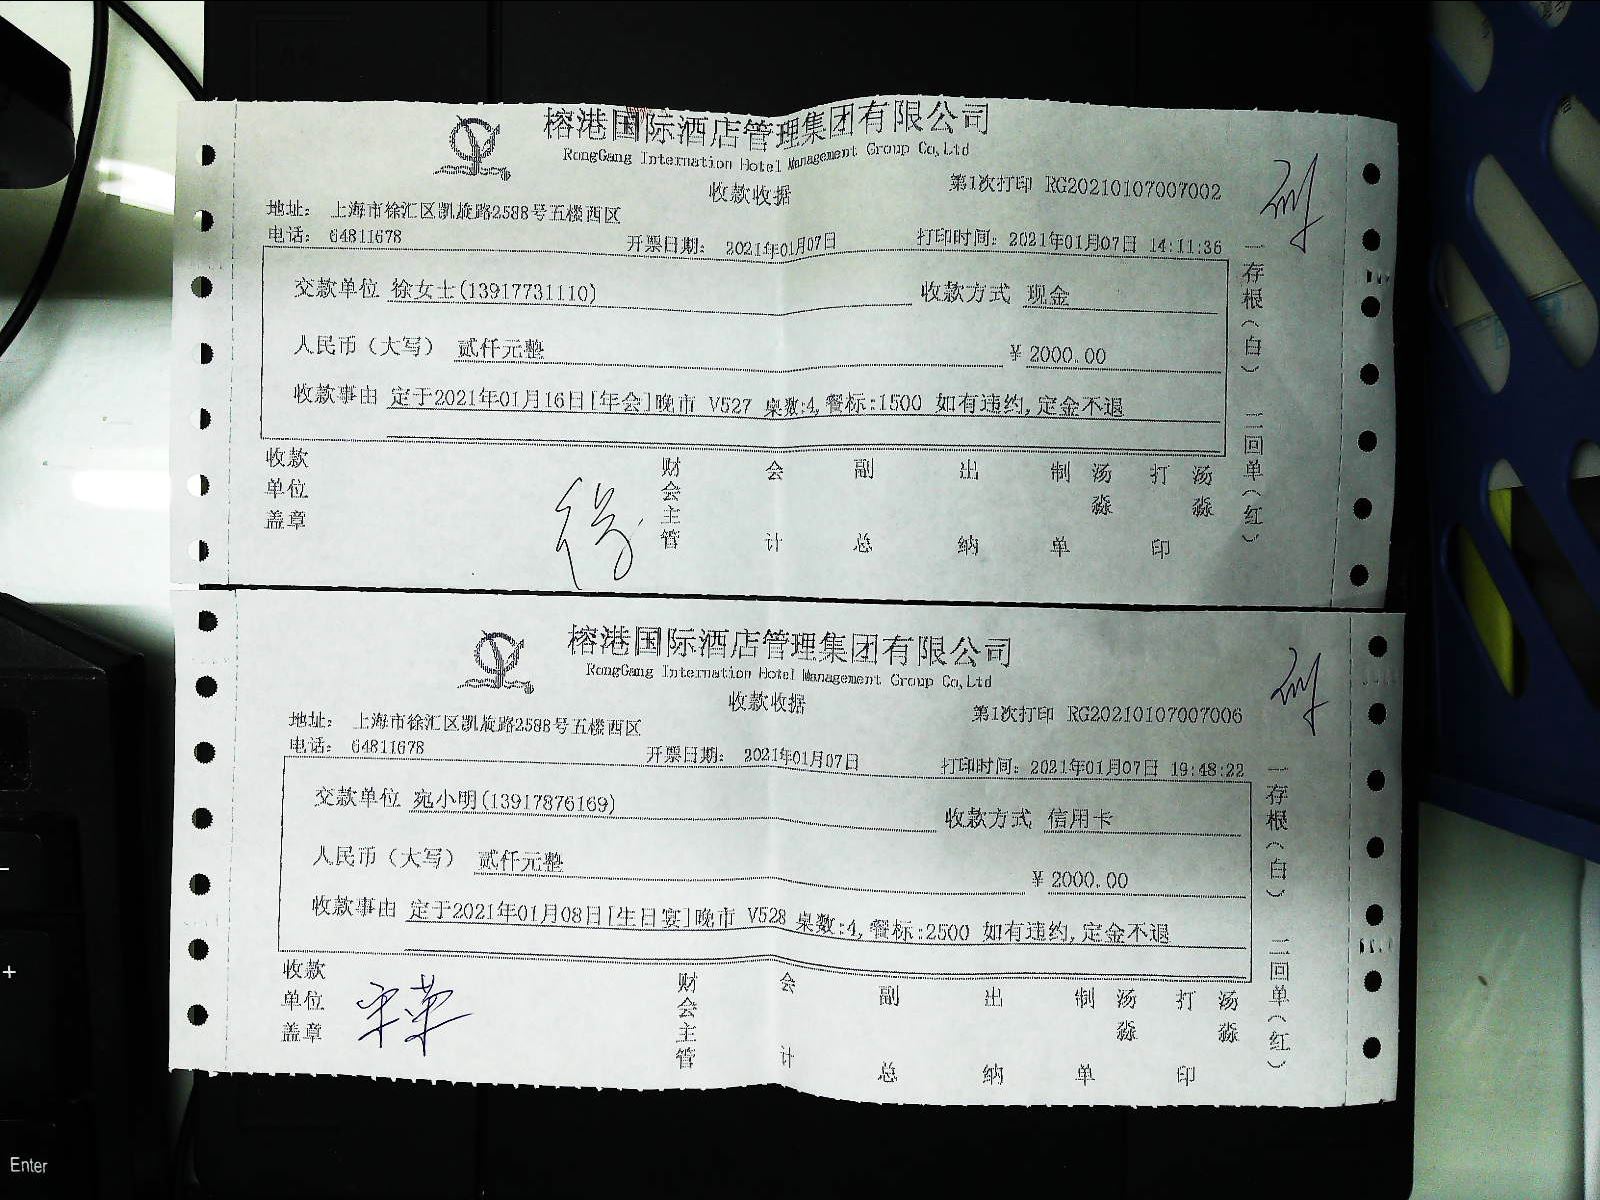 榕港国际酒店管理集团有限公司
RongGang Internation Hotel Management Group Co,Ltd
收款收据
第1次打印 RG20210107007002
地址： 上海市徐汇区凯旋路2588号五楼西区
电话： 64811678
开票日期： 2021年01月07日
打印时间：2021年01月07日 14:11:36
交款单位 徐女士(13917731110)
收款方式 现金
人民币（大写） 贰仟元整
￥2000.00
收款事由 定于2021年01月16日[年会]晚市 V527 桌数:4,餐标:1500 如有违约,定金不退
收款单位盖章
徐
财会主管
会计
副总
出纳
制单
汤淼
打印
汤淼
一存根（白） 二回单（红）
榕港国际酒店管理集团有限公司
RongGang Internation Hotel Management Group Co,Ltd
收款收据
第1次打印 RG20210107007006
地址： 上海市徐汇区凯旋路2588号五楼西区
电话： 64811678
开票日期： 2021年01月07日
打印时间：2021年01月07日 19:48:22
交款单位 宛小明(13917876169)
收款方式 信用卡
人民币（大写） 贰仟元整
￥2000.00
收款事由 定于2021年01月08日[生日宴]晚市 V528 桌数:4,餐标:2500 如有违约,定金不退
收款单位盖章
宋荣
财会主管
会计
副总
出纳
制单
汤淼
打印
汤淼
一存根（白） 二回单（红）
+
Enter